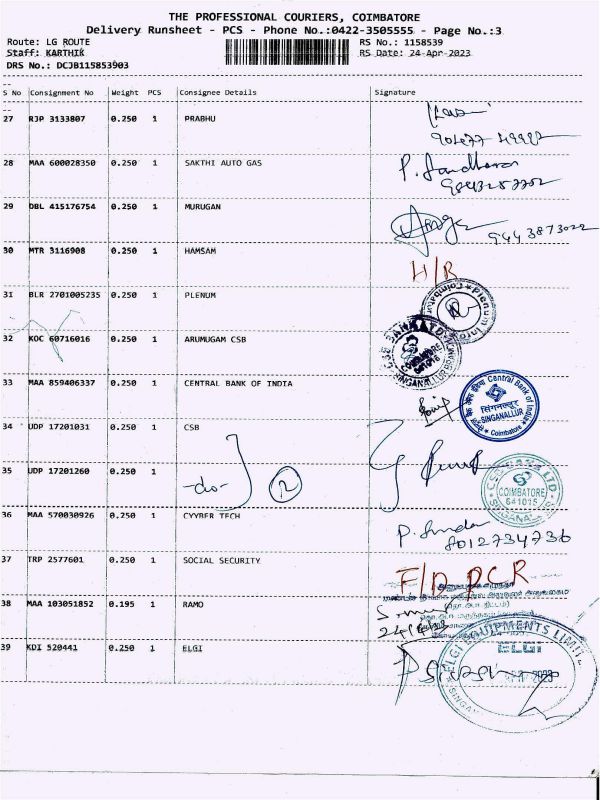 THE PROFESSIONAL COURIERS, COIMBATORE
Delivery Runsheet - PCS - Phone No.:0422-3505555 - Page No.:3
Route: LG ROUTE RS No.: 1158539
Staff: KARTHIK RS Date: 24-Apr-2023
DRS No.: DCJB115853903
S No Consignment No Weight PCS Consignee Details Signature
27 RJP 3133807 0.250 1 PRABHU
28 MAA 600028350 0.250 1 SAKTHI AUTO GAS
29 DBL 415176754 0.250 1 MURUGAN
9443873022
30 MTR 3116908 0.250 1 HAMSAM H/R
31 BLR 2701005235 0.250 1 PLENUM
Plenum Info Coimbatore
32 KOC 60716016 0.250 1 ARUMUGAM CSB
SINGANALLUR
33 MAA 859406337 0.250 1 CENTRAL BANK OF INDIA
Central Bank of India
सिंगनल्लूर
SINGANALLUR
Coimbatore
34 UDP 17201031 0.250 1 CSB
35 UDP 17201260 0.250 1 -do- 2
CSB BANK LTD
COIMBATORE
641015
36 MAA 570030926 0.250 1 CYYBER TECH
8012734736
37 TRP 2577601 0.250 1 SOCIAL SECURITY F/D DCR
38 MAA 103051852 0.195 1 RAMO
39 KDI 520441 0.250 1 ELGI
ELGI EQUIPMENTS LIMITED
ELGi